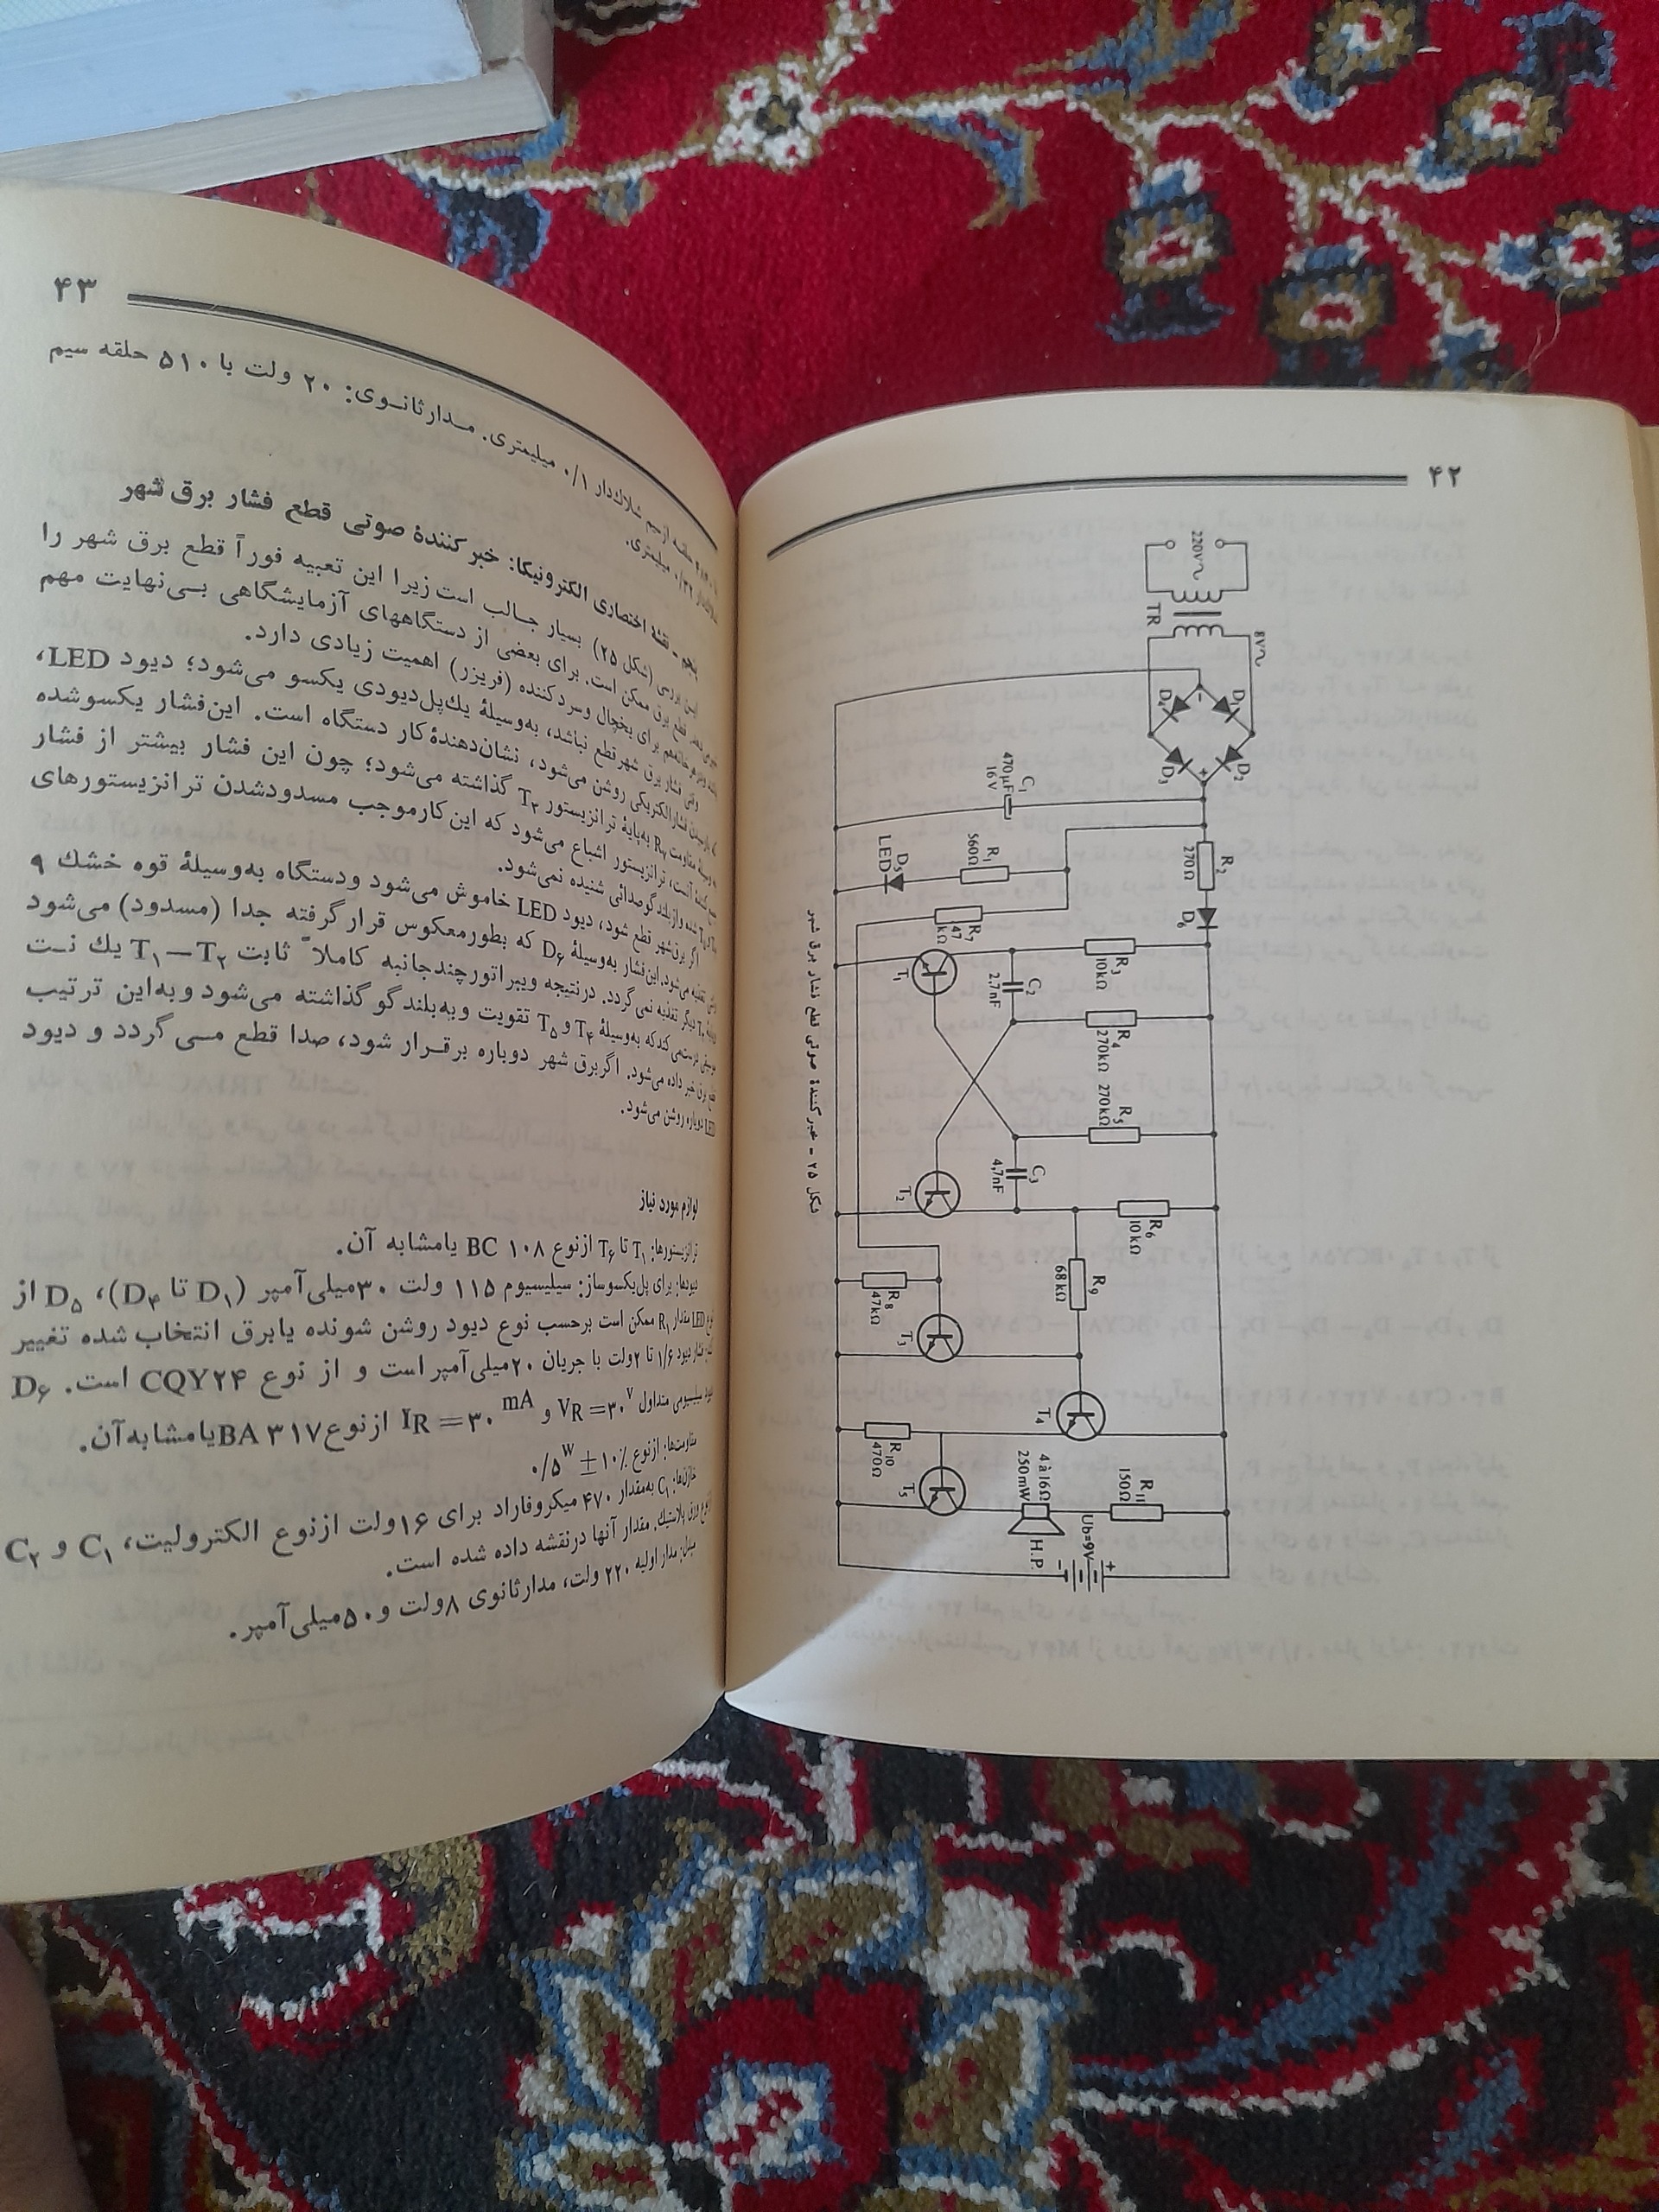 ۴۲
220V~
8V~
TR
D1
D2
D3
D4
-
+
C1
470µF
16V
R1
560Ω
D5
LED
R2
270Ω
D6
R7
47
kΩ
R3
10kΩ
T1
C2
2.7nF
R4
270kΩ
R5
270kΩ
C3
4,7nF
T2
R6
10kΩ
R9
68kΩ
R8
47kΩ
T3
T4
R10
470Ω
T5
4 à 16Ω
250mW
H.P.
R11
150Ω
Ub=9V
+
-
شکل ۲۵ - خبرکنندهٔ صوتی قطع فشار برق شهر
۴۳
حلقه ازسیم شلاک‌دار ۰/۱ میلیمتری. مدارثانوی: ۲۰ ولت با ۵۱۰ حلقه سیم
میلیمتری.
پنجم - نقشهٔ اختصاری الکترونیکا: خبرکنندهٔ صوتی قطع فشار برق شهر
این بررسی (شکل ۲۵) بسیار جالب است زیرا این تعبیه فوراً قطع برق شهر را
قطع برق ممکن است. برای بعضی از دستگاههای آزمایشگاهی بی‌نهایت مهم
هم برای یخچال وسردکننده (فریزر) اهمیت زیادی دارد.
وقتی فشار برق شهرقطع نباشد، به‌وسیلهٔ یك‌پل‌دیودی یکسو می‌شود؛ دیود LED،
فشارالکتریکی روشن می‌شود، نشان‌دهندهٔ‌کار دستگاه است. این‌فشار یکسوشده
مقاومت R۷ به‌پایهٔ ترانزیستور T۳ گذاشته می‌شود؛ چون این فشار بیشتر از فشار
است، ترانزیستور اشباع می‌شود که این‌کارموجب مسدودشدن ترانزیستورهای
شده وازبلندگوصدائی شنیده نمی‌شود.
اگر برق‌شهر قطع شود، دیود LED خاموش می‌شود ودستگاه به‌وسیلهٔ قوه خشك ۹
تغذیه می‌شود.این‌فشار به‌وسیلهٔ D۶ که بطورمعکوس قرارگرفته جدا (مسدود) می‌شود
دیگر تغذیه نمی‌گردد. درنتیجه ویبراتورچندجانبه کاملاً ثابت T۱—T۲ یك نت
می‌کندکه به‌وسیلهٔ T۴ و T۵ تقویت وبه‌بلندگوگذاشته می‌شود وبه‌این ترتیب
قطع برق خبر داده می‌شود. اگربرق شهر دوباره برقرار شود، صدا قطع می‌گردد و دیود
LED دوباره روشن می‌شود.
لوازم مورد نیاز
ترانزیستورها: T۱ تا T۶ ازنوع BC ۱۰۸ یامشابه آن.
دیودها: برای پل‌یکسوساز: سیلیسیوم ۱۱۵ ولت ۳۰میلی‌آمپر (D۱ تا D۴)، D۵ از
نوع LED مقدار R۱ ممکن است برحسب نوع دیود روشن شونده یابرق انتخاب شده تغییر
فشار دیود ۱/۶ تا ۲ولت با جریان ۲۰میلی‌آمپراست و از نوع CQY۲۴ است. D۶
دیود سیلیسیومی متداول VR=۳۰v و IR=۳۰mA ازنوع‌BA ۳۱۷یامشابه‌آن.
مقاومت‌ها: ازنوع ۱۰٪± ۰/۵W
خازن‌ها: C۱ به‌مقدار ۴۷۰ میکروفاراد برای ۱۶ولت ازنوع الکترولیت، C۱ و C۲
ازنوع ورق پلاستیك. مقدار آنها درنقشه داده شده است.
مبدل: مدار اولیه ۲۲۰ ولت، مدارثانوی ۸ولت و۵۰میلی‌آمپر.